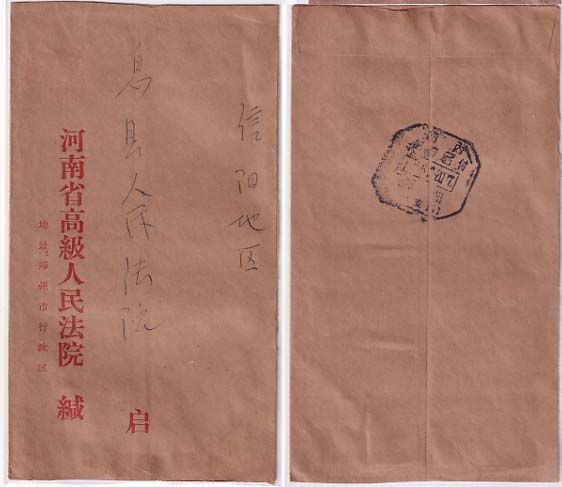 信阳地区
息县人民法院
启
河南省高級人民法院 缄
地址:郑州市行政区